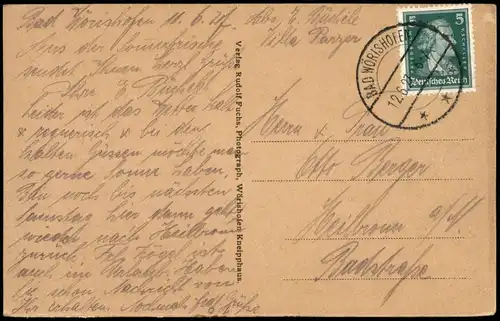 Bad Wörishofen 11.6.27. Abs. E. Büchele
Villa Panzer
Aus der Sommerfrische
sendet Ihnen herzl. Grüße
Ihre E. Büchele
Leider ist das Wetter kalt
& regnerisch & bei den
kalten Güssen möchte man
so gerne Sonne haben.
Bin noch bis nächsten
Samstag hier dann geht
wieder nach Heilbronn
zurück. Frl. Vögel ist
auch im Haben
Sie schon Nachricht von
Ihr erhalten. Nochmals herzl. Grüße
Verlag Rudolf Fuchs, Photograph, Wörishofen Kneipphaus.
BAD WÖRISHOFEN
12.6.27
5 5
Deutsches Reich
Herrn & Frau
Otto Berger
Heilbronn a/N
Badstraße